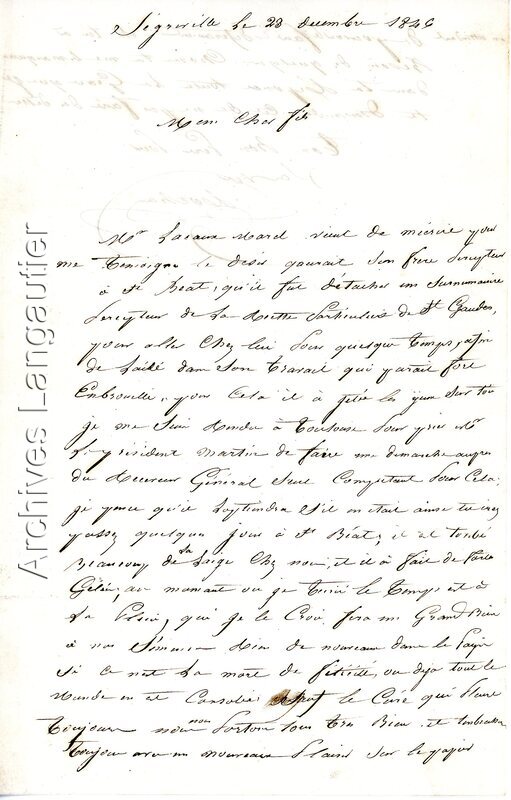 Ségreville le 28 décembre 1846
Mon Cher fils
Mr Lacaux Marcl vient de mécrire pour
me temoigner le desir quaurait son frere percepteur
à St Béat, qu'il fut détacher un surnumeraire
percepteur de la Recette Particuliere de St Gaudens,
pour aller chez lui pour quelque temps, afin
de laidé dans son travail qui parait fort
Enbrouillé, pour cela il à jetée les yeux sur toi
je me suis rendu à Toulouse pour prier Mr
le president Martin de faire une demarche aupres
du Receveur Général seul Compétant pour cela;
je pense qu'il lobtiendra s'il en etait ainsi tu irez
passez quelques jours à St Béat, il et tonbé
Beaucoup de la neige chez nous, et il à fait de forte
Gelée, au momant ou je tecris le temps est à
la Pluie, qui je le Crois fera un Grand Bien
à nos semences Rien de nouveaux dans le Païs
si ce nest la mort de ou deja tout le
Monde en et Consolé sauf le Curé qui pleure
toujours nous nous portons tous tres Bien, et
toujour avec un nouveaux plaisir sur le papier
Archives Langautier